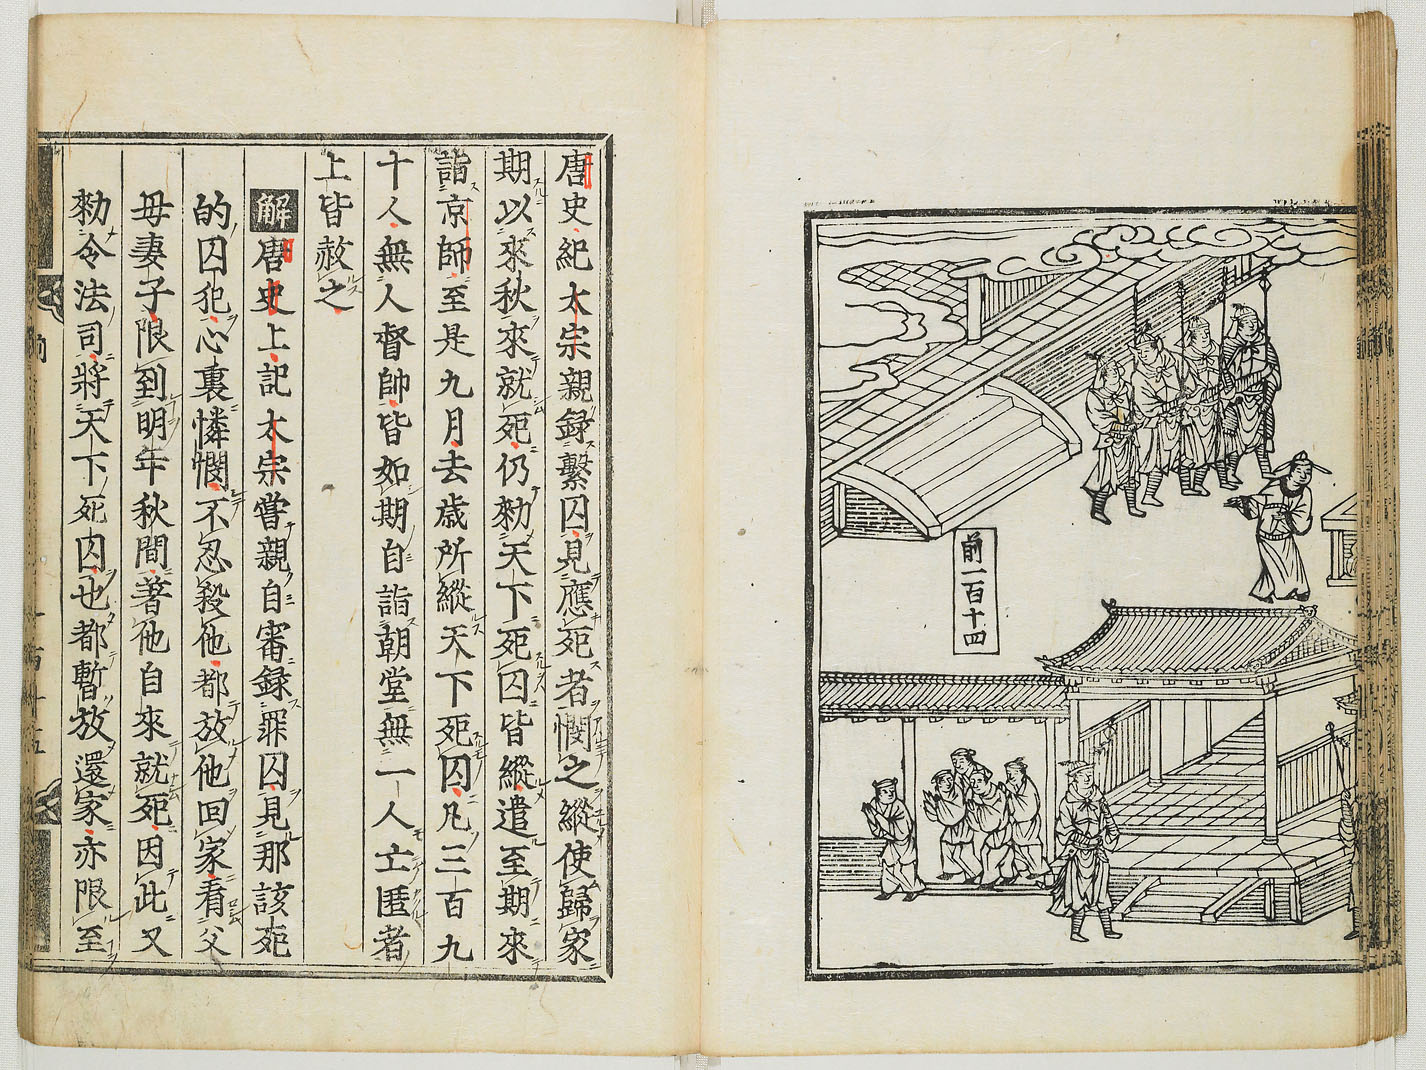 前一百十四
唐史紀太宗親録繫囚見應死者憫之縱使歸家
期以來秋來就死仍勑天下死囚皆縱遣至期來
詣京師至是九月去歲所縱天下死囚凡三百九
十人無人督帥皆如期自詣朝堂無一人亡匿者
上皆赦之
解唐史上記太宗嘗親自審録罪囚見那該死
的囚犯心裏憐憫不忍殺他都放他回家看父
母妻子限到明年秋間著他自來就死因此又
勑令法司將天下死囚也都暫放還家亦限至